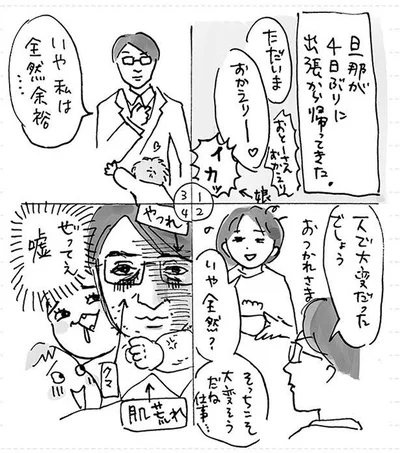 旦那が
4日ぶりに
出張から帰ってきた。
ただいま
おかえりー♡
おとーさん
おかえり
イカッ
←娘
3 1
4 2
一人で大変だった
でしょう
おつかれさま
いや全然?
そっちこそ
大変そう
だね
仕事…
いや私は
全然余裕
……
やつれ
ぜってぇ
嘘
クマ
肌荒れ